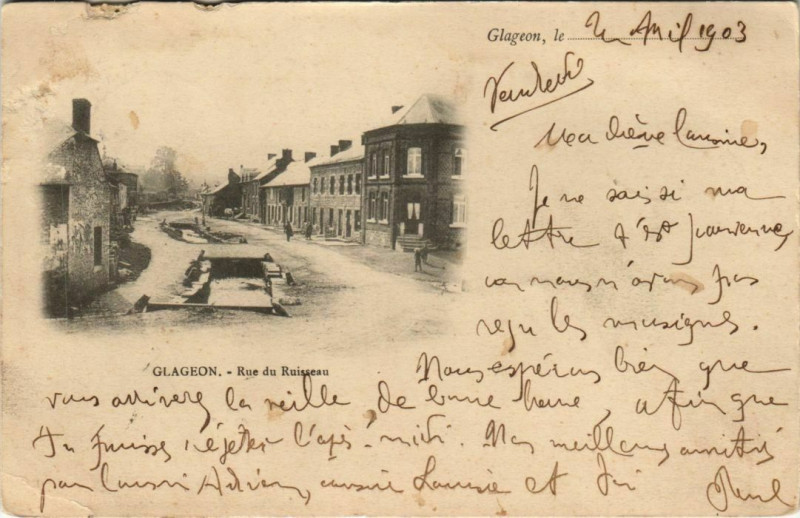 Glageon, le 2 Avril 1903
Vendredi
Ma chère Cousine,
Je ne sais si ma
lettre t'est parvenue,
car nous n'avons pas
reçu les musiques.
GLAGEON. - Rue du Ruisseau
Nous espérons bien que
vous arriverez la veille de bonne heure, afin que
Tu puisses répéter l'après-midi. Nos meilleures amitiés
pour Cousin Adrien, cousine Laurie et toi